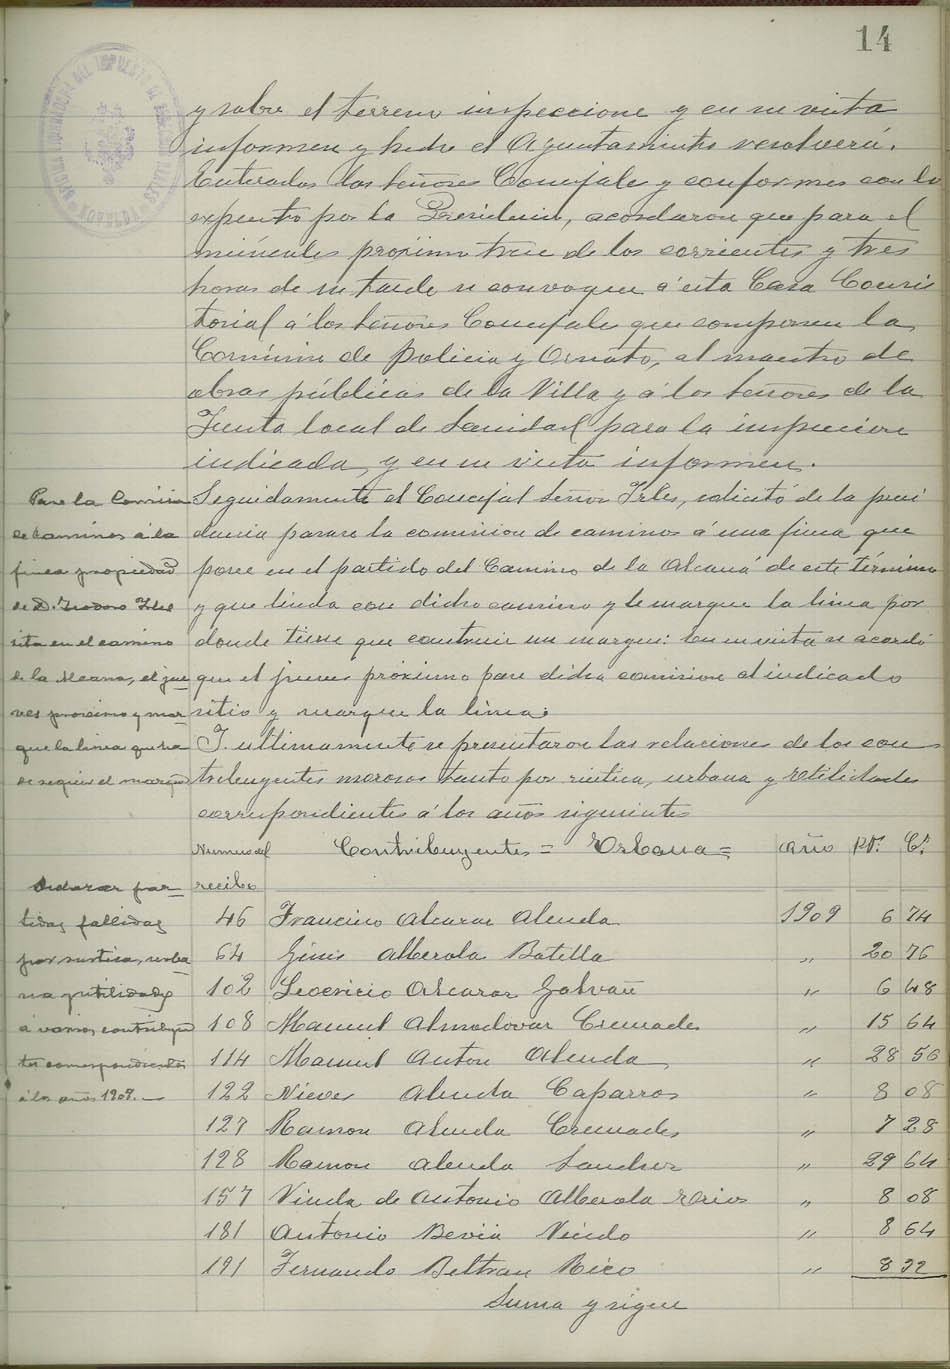 14
y sobre el terreno inspeccione y en su vista
informen y hecho el Ayuntamiento resolverá.
Enterados los Señores Concejales y conformes con lo
expuesto por la Presidencia, acordaron que para el
miércoles próximo trece de los corrientes y tres
horas de su tarde se convoque á esta Casa Consis
torial á los Señores Concejales que componen la
Comisión de Policia y Ornato, al maestro de
obras públicas de la Villa y á los Señores de la
Junta local de Sanidad para la inspección
indicada y en su vista informen.
Pase la Comisión
de caminos á la
finca propiedad
de D. Teodoro Irles
sita en el camino
de la Alcana, el jue
ves proximo y mar
que la linea que ha
de seguir el margen
Seguidamente el Concejal Señor Irles, solicitó de la presi
dencia pasase la comision de caminos á una finca que
posee en el partido del Camino de la Alcaná de este término
y que linda con dicho camino y le marque la linea por
donde tiene que construir un margen: En su vista se acordó
que el jueves próximo pase dicha comision al indicado
sitio y marque la linea.
Y ultimamente se presentaron las relaciones de los con
tribuyentes morosos tanto por rústica, urbana y utilidades
correspondientes á los años siguientes
Declarar par
tidas fallidas
por rustica, urba
na y utilidades
á varios contribuyen
tes correspondientes
á los años 1909.
Numero del recibo Contribuyentes = Urbana = Año Pts. Cts.
46 Francisco Alcaraz Alenda 1909 6 74
64 Ginés Alberola Botella " 20 76
102 Leoncicio Alcaraz Galvañ " 6 48
108 Manuel Almodovar Cremades " 15 64
114 Manuel Anton Alenda " 28 56
122 Nieves Alenda Caparros " 8 08
127 Ramon Alenda Cremades " 7 28
128 Ramon Alenda Sanchez " 29 64
157 Viuda de Antonio Alberola Rios " 8 08
181 Antonio Bevia Viudo " 8 64
191 Fernando Beltran Rico " 8 32
Suma y sigue